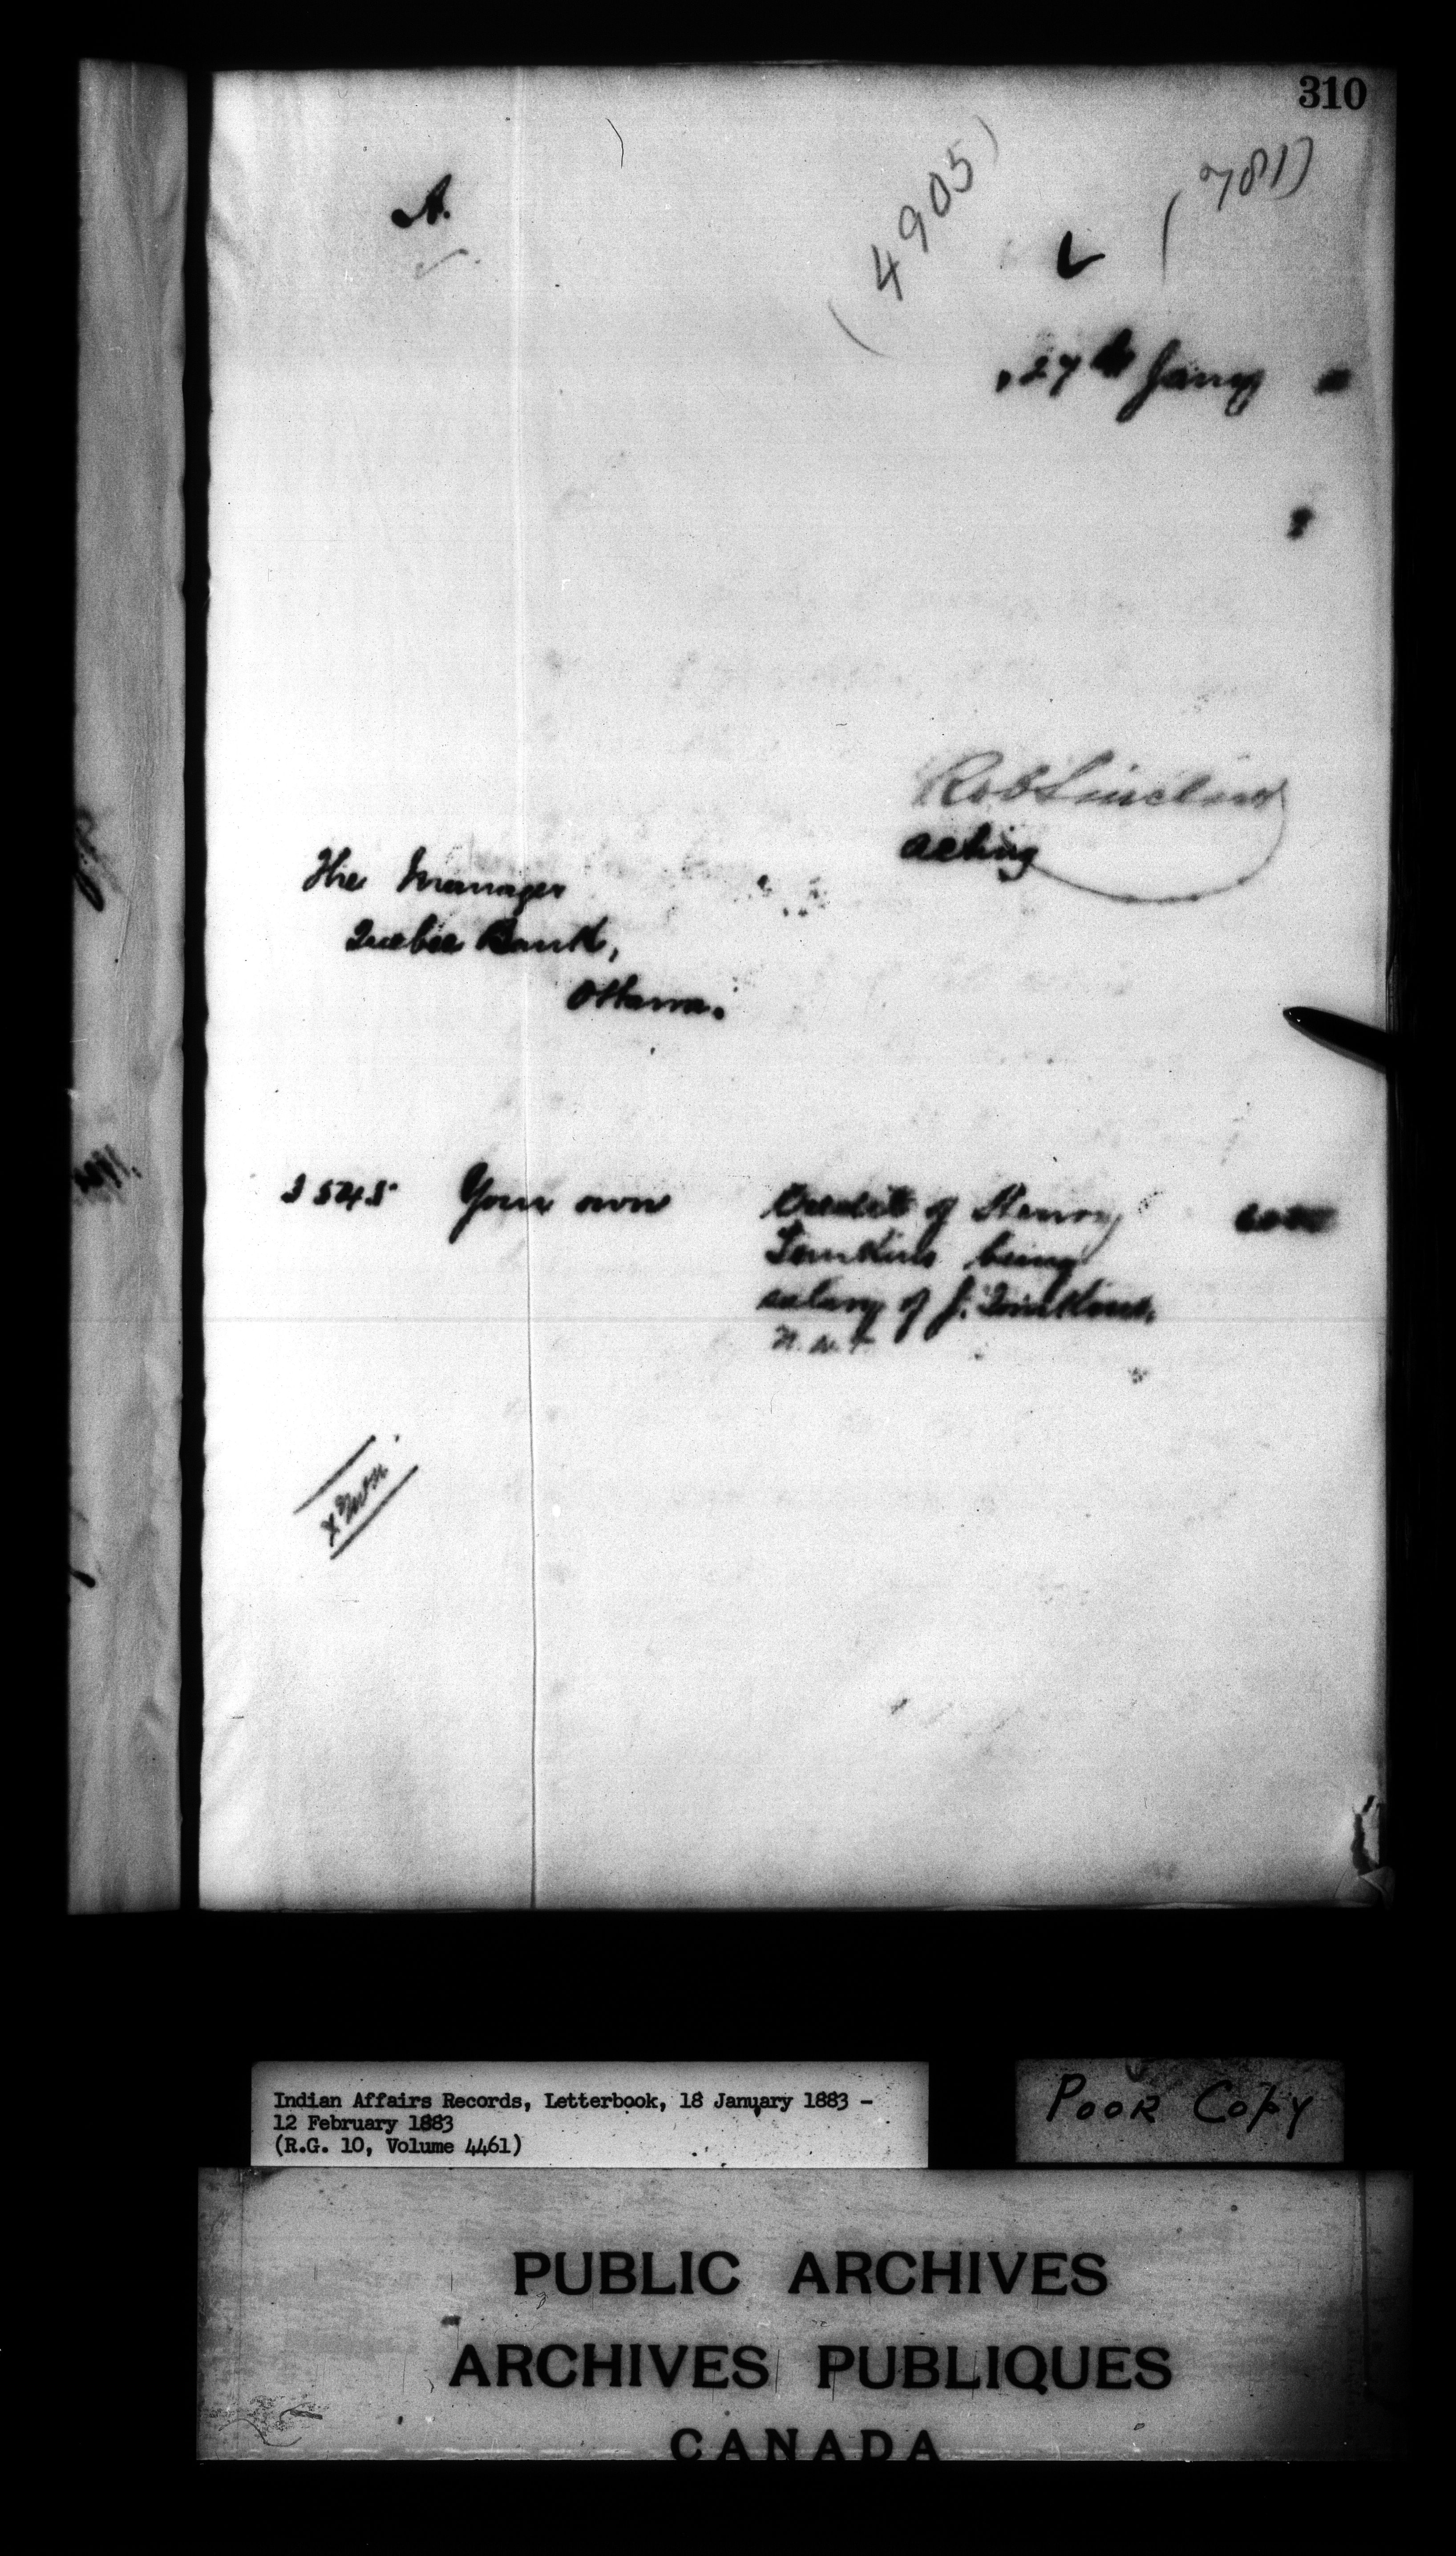 310
A.
(4905)
(781)
27th Jany
Rob Sinclair
acting
The Manager
Quebec Bank,
Ottawa.
Your own
Credit of Henry
Tomkins being
salary of J. Tomkins,
N. W. T
Indian Affairs Records, Letterbook, 18 January 1883 -
12 February 1883
(R.G. 10, Volume 4461)
POOR COPY
PUBLIC ARCHIVES
ARCHIVES PUBLIQUES
CANADA